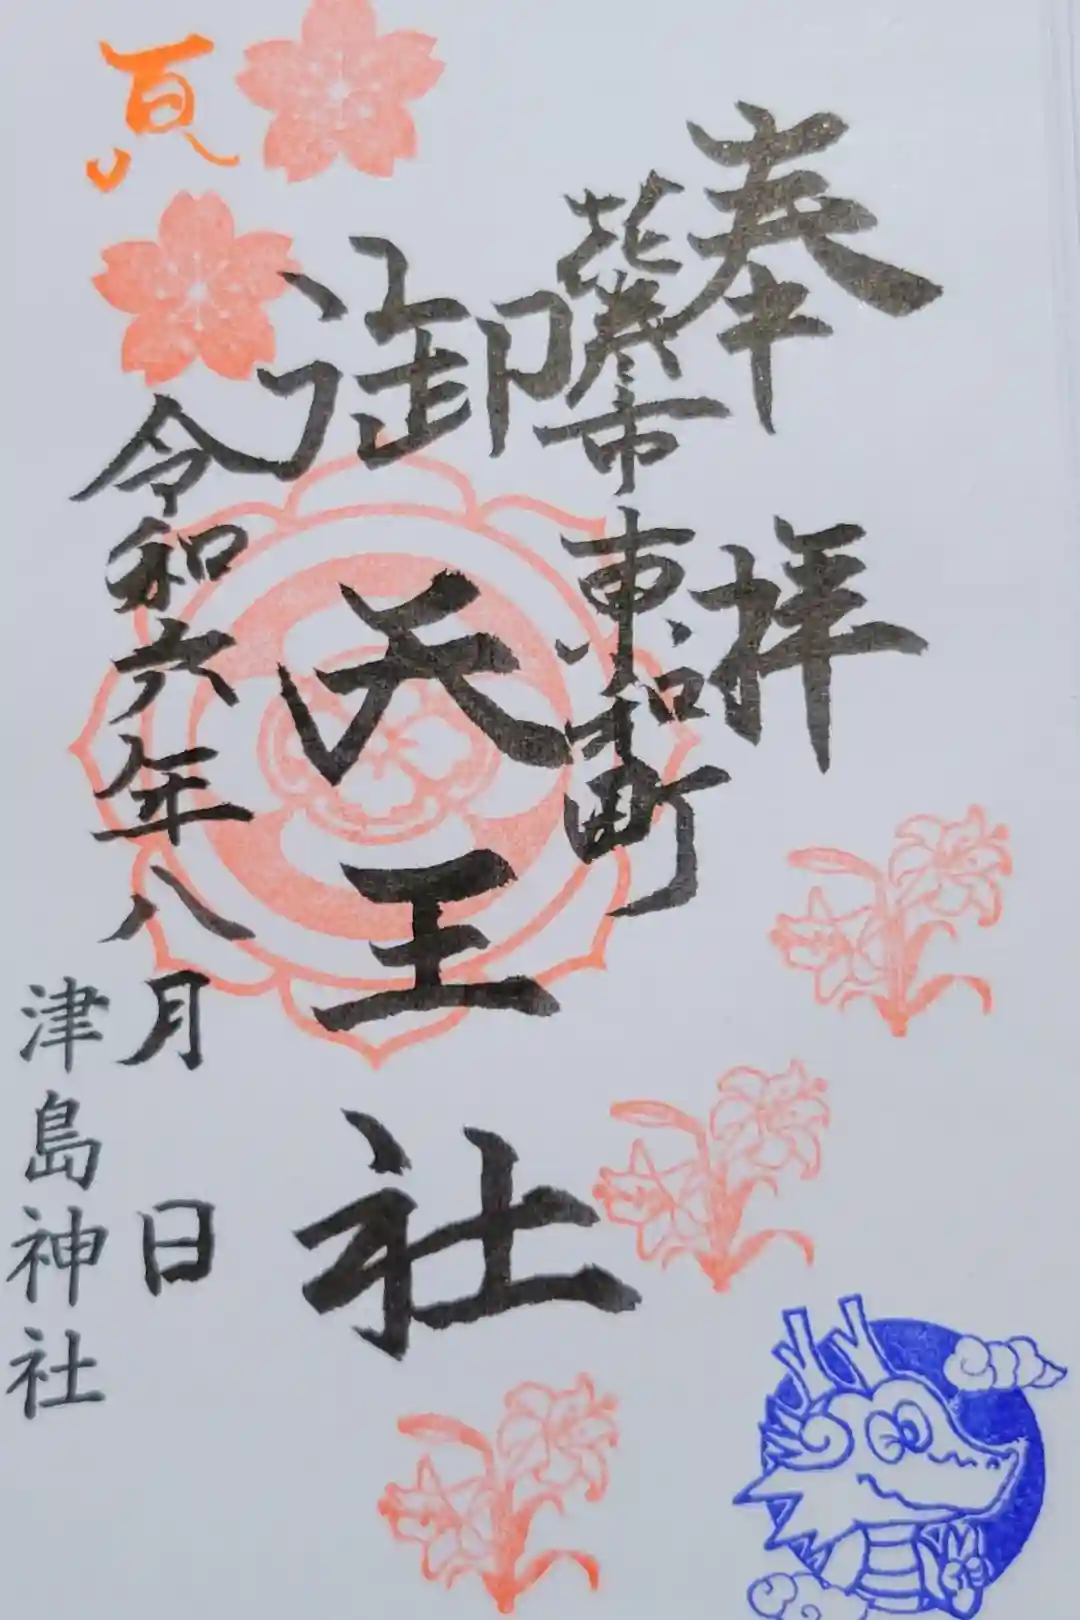 奉拝
花巻市東和町
御天王社
夏
令和六年八月 日
津島神社